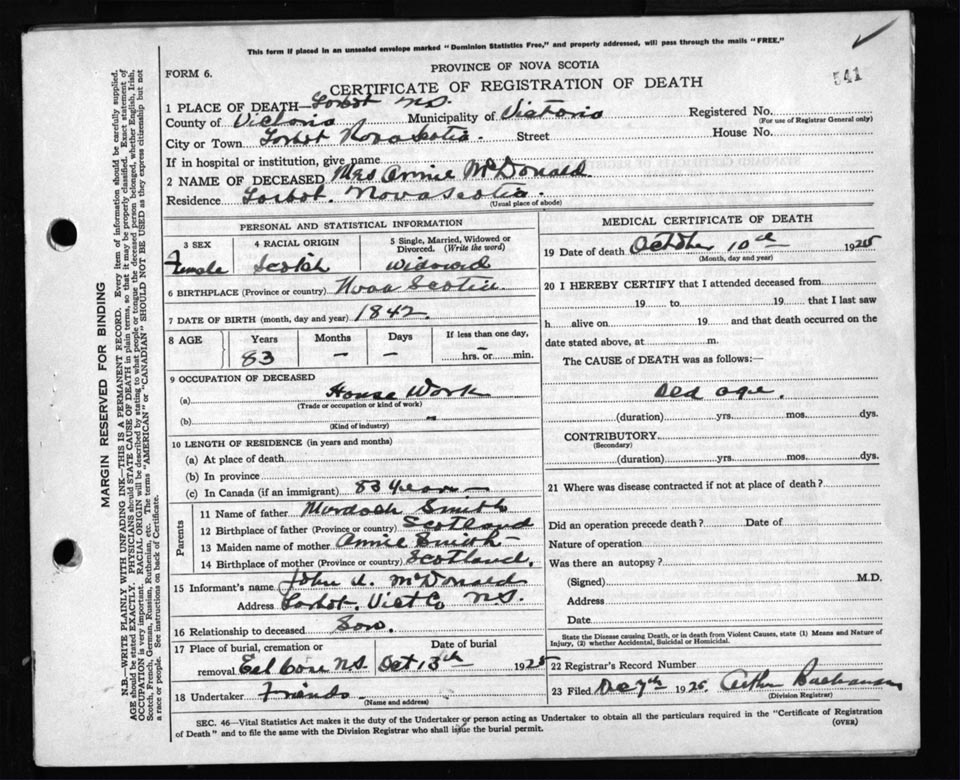 This form if placed in an unsealed envelope marked "Dominion Statistics Free," and properly addressed, will pass through the mails "FREE."
541
PROVINCE OF NOVA SCOTIA
FORM 6.
CERTIFICATE OF REGISTRATION OF DEATH
1 PLACE OF DEATH— N.S.
County of Victoria Municipality of Victoria Registered No.
(For use of Registrar General only)
City or Town Nova Scotia. Street House No.
If in hospital or institution, give name
2 NAME OF DECEASED Mrs Annie McDonald
Residence Nova Scotia.
(Usual place of abode)
PERSONAL AND STATISTICAL INFORMATION
3 SEX
Female
4 RACIAL ORIGIN
Scotch
5 Single, Married, Widowed or Divorced. (Write the word)
Widowed
6 BIRTHPLACE (Province or country) Nova Scotia
7 DATE OF BIRTH (month, day and year) 1842.
8 AGE
Years Months Days If less than one day,
83 – – – hrs. or min.
9 OCCUPATION OF DECEASED
(a) House Work
(Trade or occupation or kind of work)
(b) –
(Kind of industry)
10 LENGTH OF RESIDENCE (in years and months)
(a) At place of death
(b) In province
(c) In Canada (if an immigrant) 83 years –
Parents
11 Name of father Murdoch Smith
12 Birthplace of father (Province or country) Scotland
13 Maiden name of mother Annie Smith –
14 Birthplace of mother (Province or country) Scotland.
15 Informant's name John A. McDonald
Address Vict Co N.S.
16 Relationship to deceased Son.
17 Place of burial, cremation or removal Date of burial
Eel Cove N.S. Oct 13th 1925
18 Undertaker Friends
(Name and address)
MEDICAL CERTIFICATE OF DEATH
19 Date of death October 10th 1925
(Month, day and year)
20 I HEREBY CERTIFY that I attended deceased from
19 to 19 that I last saw
h alive on 19 and that death occurred on the
date stated above, at m.
The CAUSE of DEATH was as follows:—
Old age.
(duration) yrs. mos. dys.
CONTRIBUTORY
(Secondary)
(duration) yrs. mos. dys.
21 Where was disease contracted if not at place of death?
Did an operation precede death? Date of
Nature of operation
Was there an autopsy?
(Signed) M.D.
Address
Date
State the Disease causing Death, or in death from Violent Causes, state (1) Means and Nature of
Injury, (2) whether Accidental, Suicidal or Homicidal.
22 Registrar's Record Number
23 Filed Dec 7th 1925 Arthur Buchanan
(Division Registrar)
SEC. 46—Vital Statistics Act makes it the duty of the Undertaker or person acting as Undertaker to obtain all the particulars required in the "Certificate of Registration
of Death" and to file the same with the Division Registrar who shall issue the burial permit.
(OVER)
MARGIN RESERVED FOR BINDING
N.B.—WRITE PLAINLY WITH UNFADING INK—THIS IS A PERMANENT RECORD. Every item of information should be carefully supplied.
AGE should be stated EXACTLY. PHYSICIANS should STATE CAUSE OF DEATH in plain terms, so that it may be properly classified. Exact statement of
OCCUPATION is very important. RACIAL ORIGIN will be described by stating to what people or tongue the deceased person belonged, whether English, Irish,
Scotch, French, German, Russian, Ruthenian, etc. The terms "AMERICAN" or "CANADIAN" SHOULD NOT BE USED as they express citizenship but not
a race or people. See instructions on back of Certificate.